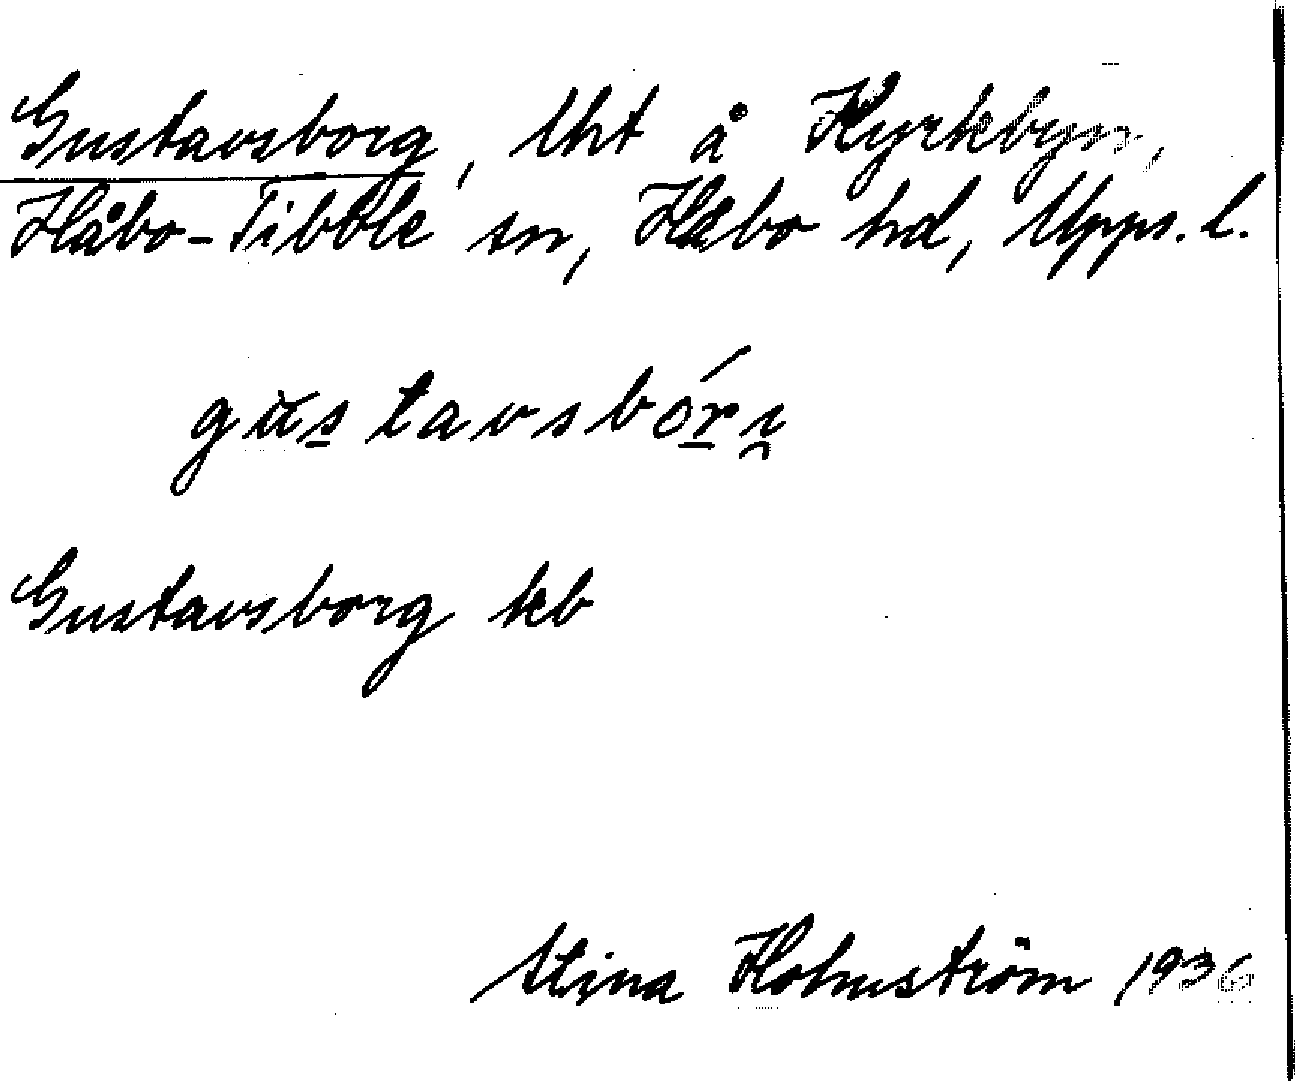 Gustavsborg, lht å Kyrkbyn,
Håbo-Tibble sn, Håbo hd, Upps. l.
gustavsbórị
Gustavsborg kb
Stina Holmström 1936